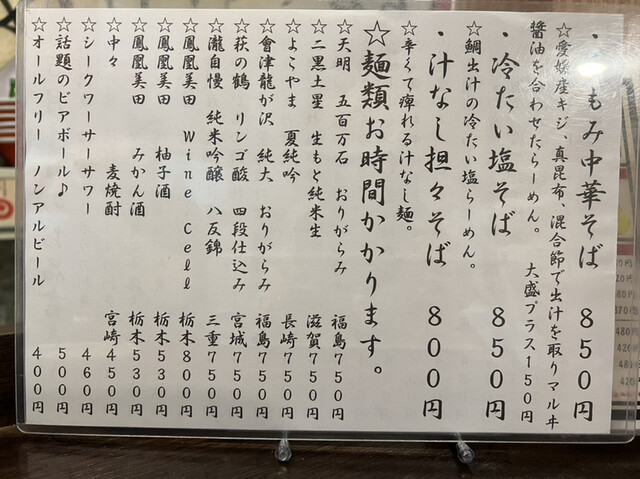 ・もみ中華そば 850円
☆愛媛産キジ、真昆布、混合節で出汁を取りマルヰ
醤油を合わせたらーめん。 大盛プラス150円
・冷たい塩そば 850円
☆鯛出汁の冷たい塩らーめん。
・汁なし担々そば 800円
☆辛くて痺れる汁なし麺。
☆麺類お時間かかります。
☆天明 五百万石 おりがらみ 福島750円
☆二黒土星 生もと純米生 滋賀750円
☆よこやま 夏純吟 長崎750円
☆會津龍が沢 純大 おりがらみ 福島750円
☆萩の鶴 リンゴ酸 四段仕込み 宮城750円
☆瀧自慢 純米吟醸 八反錦 三重750円
☆鳳凰美田 Wine Cell 栃木800円
☆鳳凰美田 柚子酒 栃木530円
☆鳳凰美田 みかん酒 栃木530円
☆中々 麦焼酎 宮崎450円
☆シークワーサーサワー 460円
☆話題のビアボール♪ 500円
☆オールフリー ノンアルビール 400円